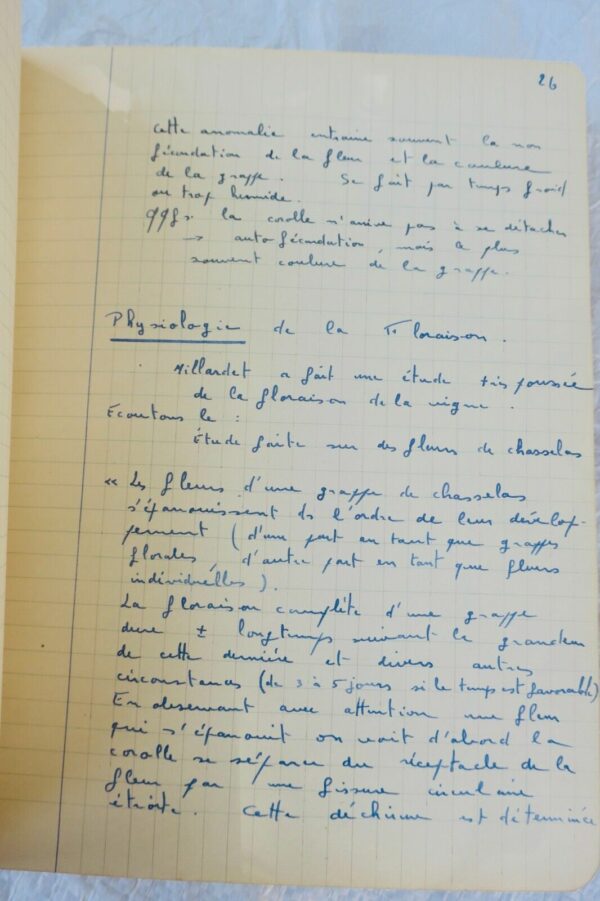 26
Cette anomalie entraine souvent la non
fécondation de la fleur et la coulure
de la grappe. Se fait par temps froid
ou trop humide.
qqfs. la corolle n'arrive pas à se détacher
→ auto fécondation, mais le plus
souvent coulure de la grappe.
Physiologie de la Floraison.
Millardet a fait une étude très poussée
de la floraison de la vigne.
Ecoutons le :
Étude faite sur des fleurs de chasselas
« Les fleurs d'une grappe de chasselas
s'épanouissent ds l'ordre de leur dévelop-
pement (d'une part en tant que grappes
florales, d'autre part en tant que fleurs
individuelles).
La floraison complète d'une grappe
dure ± longtemps suivant la grandeur
de cette dernière et divers autres
circonstances (de 3 à 5 jours si le temps est favorable)
En observant avec attention une fleur
qui s'épanouit on voit d'abord la
corolle se séparer du réceptacle de la
fleur par une fissure circulaire
étroite. Cette déchirure est déterminée